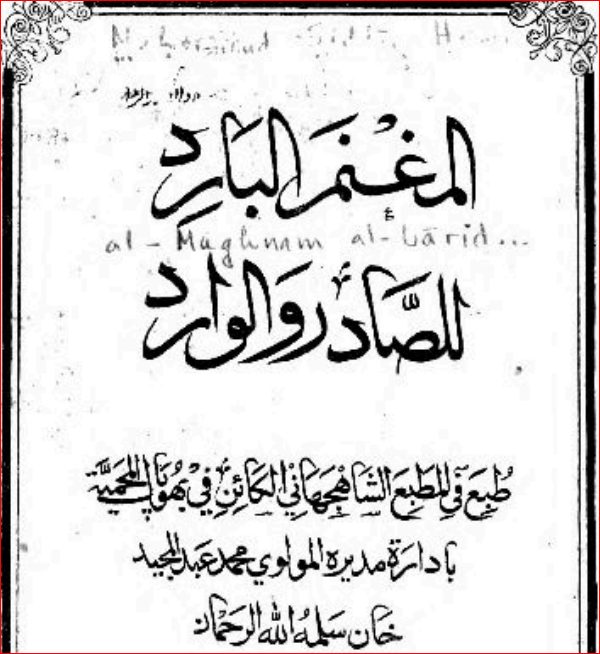 Mohammad Siddiq H
المغنم البارد
al-Maghnam al-bārid...
للصّادر والوارد
طُبِعَ في المطبع الشاهجهاني الكائن في بهوپال المحميّة
بادارة مديره المولوي محمد عبد المجيد
خان سلمه الله الرحمان